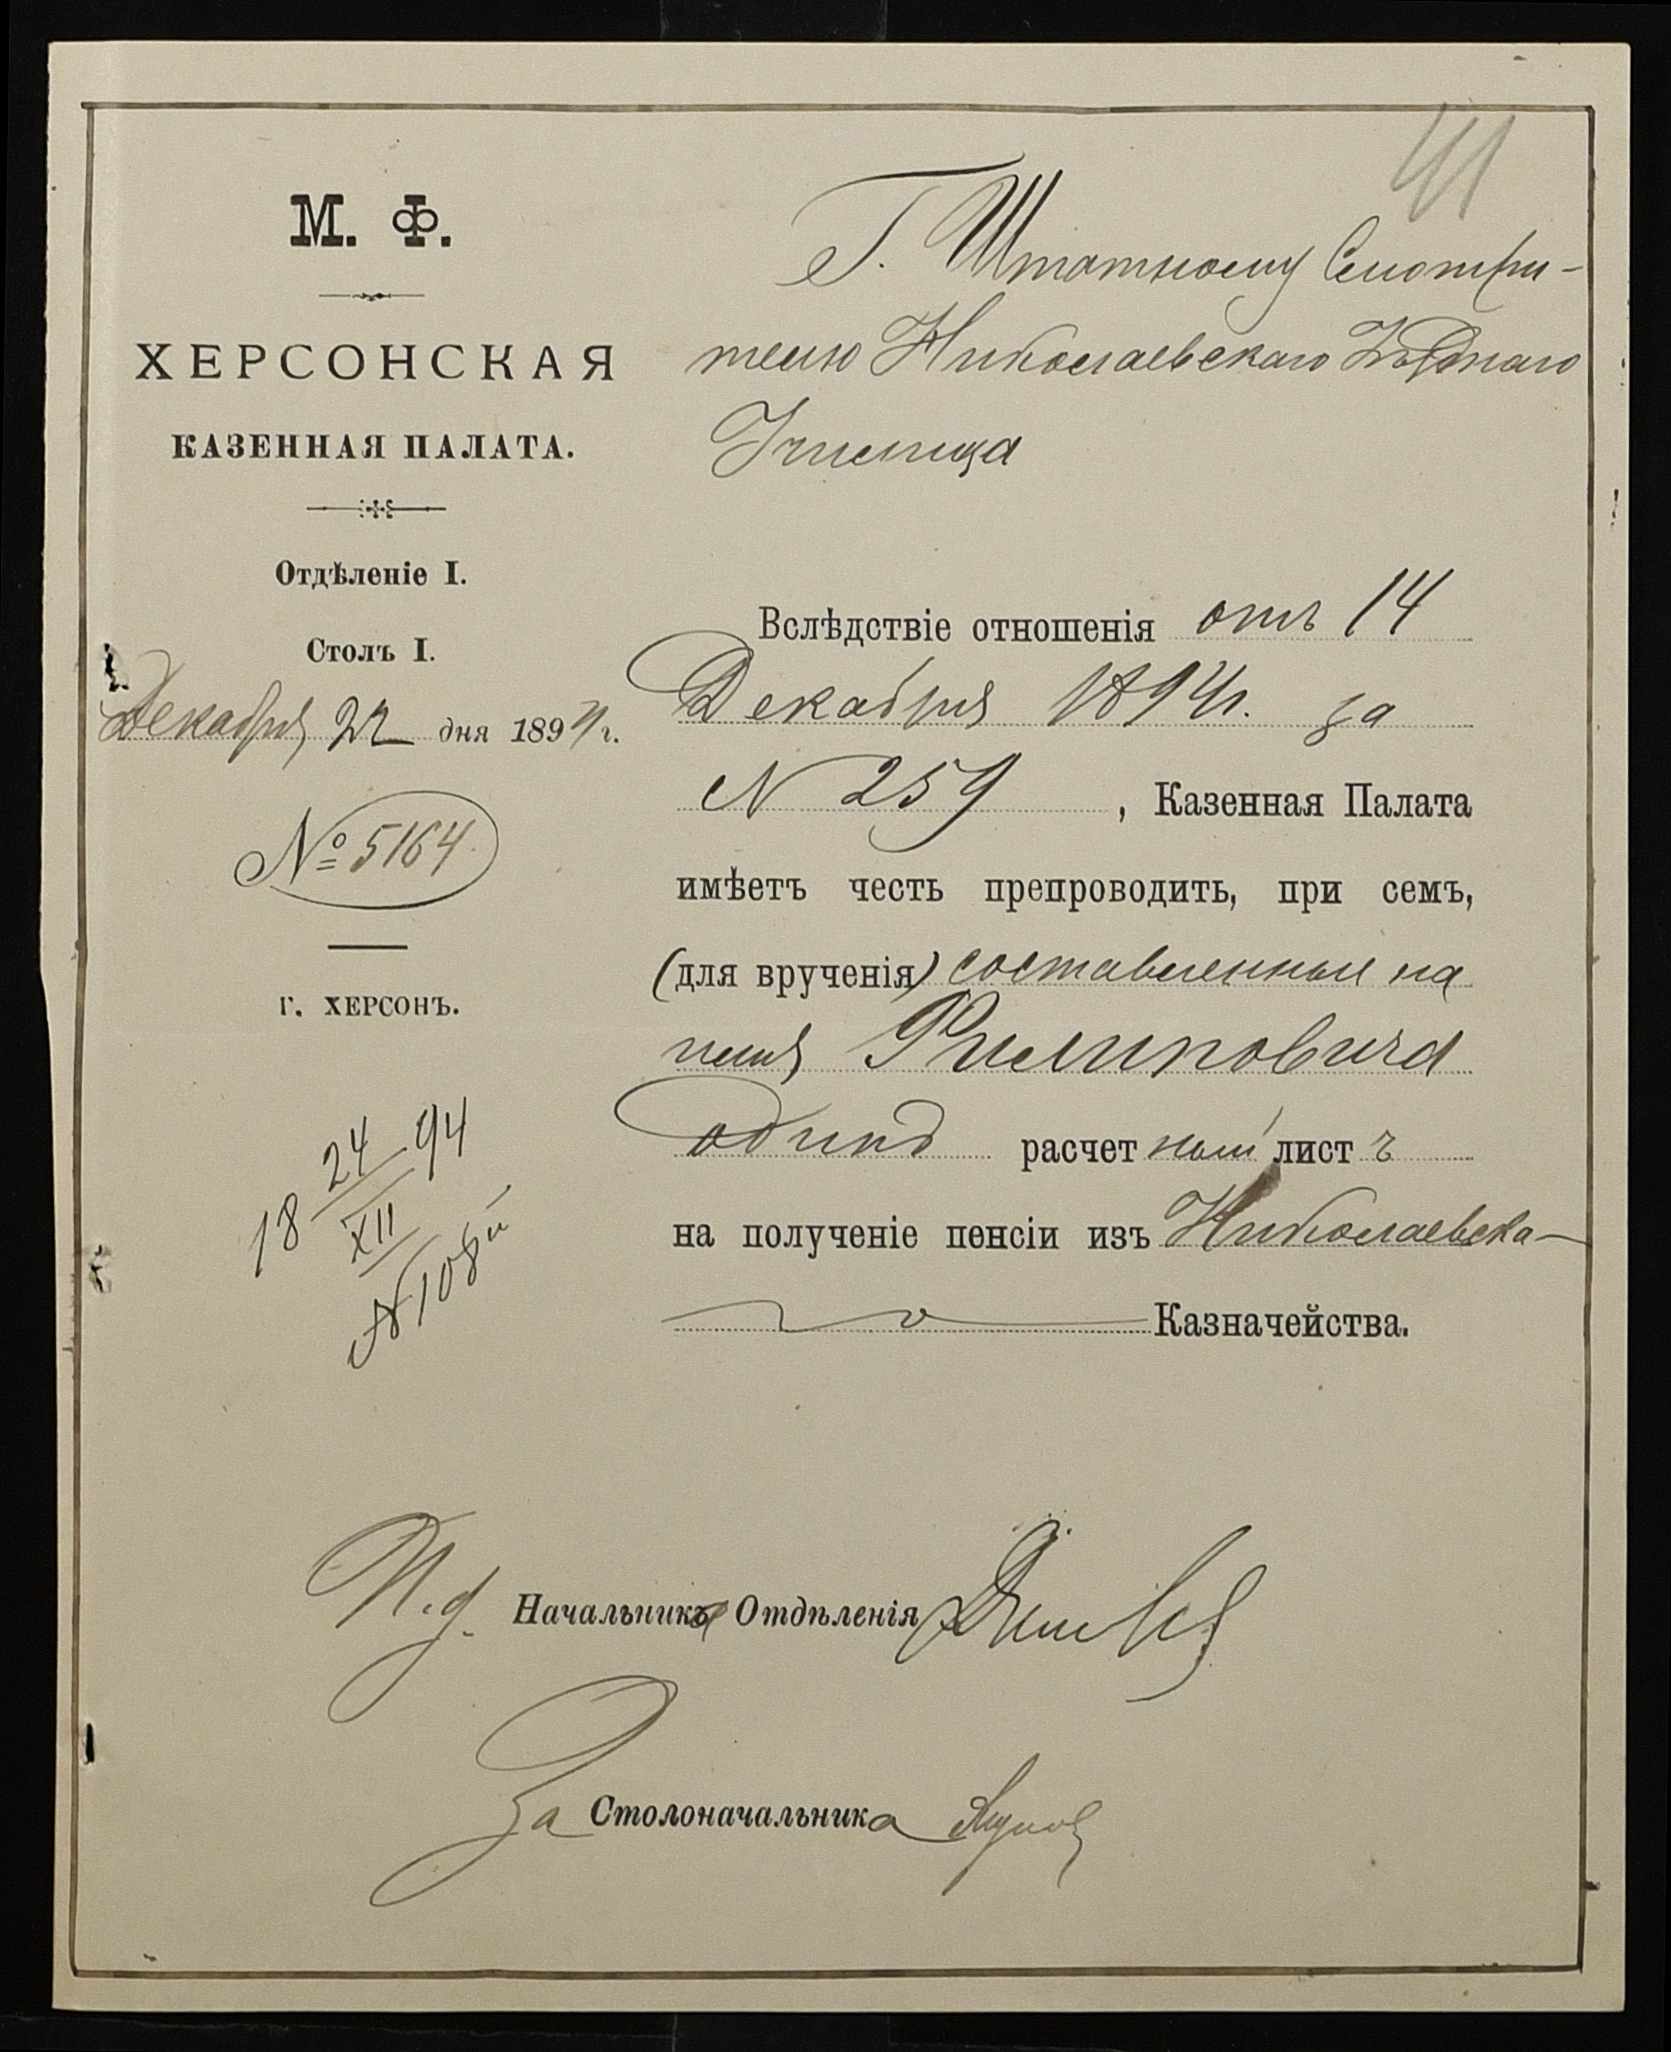 41
М. Ф.
ХЕРСОНСКАЯ
КАЗЕННАЯ ПАЛАТА.
Отдѣленіе I.
Столъ I.
Декабря 22 дня 1894 г.
№ 5164
г. ХЕРСОНЪ.
24
18 94
XII
N 108
Г. Штатному Смотри-
телю Николаевскаго Уѣзднаго
Училища
Вслѣдствіе отношенія отъ 14
Декабря 1894 г. за
N 259, Казенная Палата
имѣетъ честь препроводить, при семъ,
(для врученія) составленный на
имя Филиповича
одинъ расчетный листъ
на полученіе пенсіи изъ Николаевска-
го Казначейства.
И. д. Начальника Отдѣленія
За Столоначальника